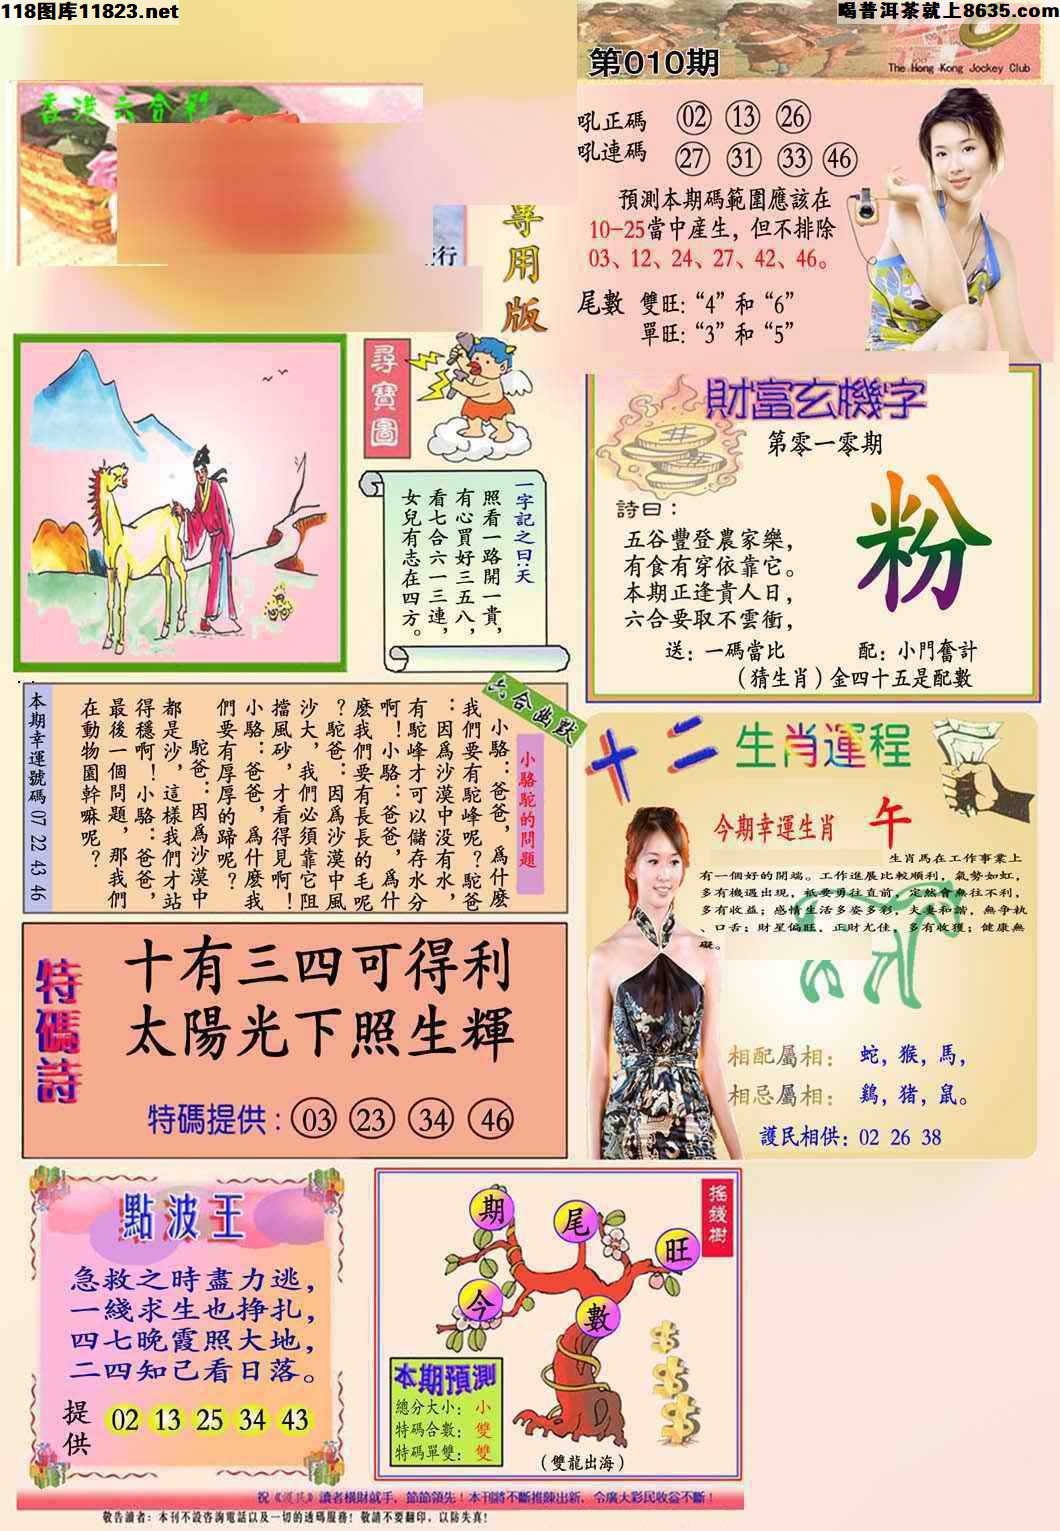 118图库11823.net
喝普洱茶就上8635.com
香港六合彩
行
專用版
第010期
The Hong Kong Jockey Club
吼正碼 02 13 26
吼連碼 27 31 33 46
預測本期碼範圍應該在
10-25當中産生，但不排除
03、12、24、27、42、46。
尾數 雙旺:“4”和“6”
單旺:“3”和“5”
尋寶圖
一字記之曰:天
照看一路開一貴，
有心買好三五八，
看七合六一三連，
女兒有志在四方。
財富玄機字
第零一零期
粉
詩曰：
五谷豐登農家樂，
有食有穿依靠它。
本期正逢貴人日，
六合要取不雲衝，
送：一碼當比 配：小門奮計
（猜生肖）金四十五是配數
六合幽默
小駱駝的問題
小駱：爸爸，爲什麽
我們要有駝峰呢？駝爸
：因爲沙漠中没有水，
有駝峰才可以儲存水分
啊！小駱：爸爸，爲什
麽我們要有長長的毛呢
？駝爸：因爲沙漠中風
沙大，我們必須靠它阻
擋風砂，才看得見啊！
小駱：爸爸，爲什麽我
們要有厚厚的蹄呢？
駝爸：因爲沙漠中
都是沙，這樣我們才站
得穩啊！小駱：爸爸，
最後一個問題，那我們
在動物園幹嘛呢？
本期幸運號碼 07 22 43 46
十二生肖運程
今期幸運生肖 午
生肖馬在工作事業上
有一個好的開端。工作進展比較順利，氣勢如虹，
多有機遇出現，衹要勇往直前，定然會無往不利，
多有收益；感情生活多姿多彩，夫妻和諧，無爭執
、口舌；財星偏旺，正財尤佳，多有收獲；健康無
礙。
相配屬相：蛇，猴，馬，
相忌屬相：鷄，猪，鼠。
護民相供：02 26 38
特碼詩
十有三四可得利
太陽光下照生輝
特碼提供：03 23 34 46
點波王
急救之時盡力逃，
一綫求生也挣扎，
四七晚霞照大地，
二四知己看日落。
提供 02 13 25 34 43
搖錢樹
今期尾數旺
本期預測
總分大小：小
特碼合數：雙
特碼單雙：雙
（雙龍出海）
祝《護民》讀者橫財就手，節節領先！本刊將不斷推陳出新，令廣大彩民收益不斷！
敬告讀者：本刊不設咨詢電話以及一切的透碼服務！敬請不要翻印，以防失真！